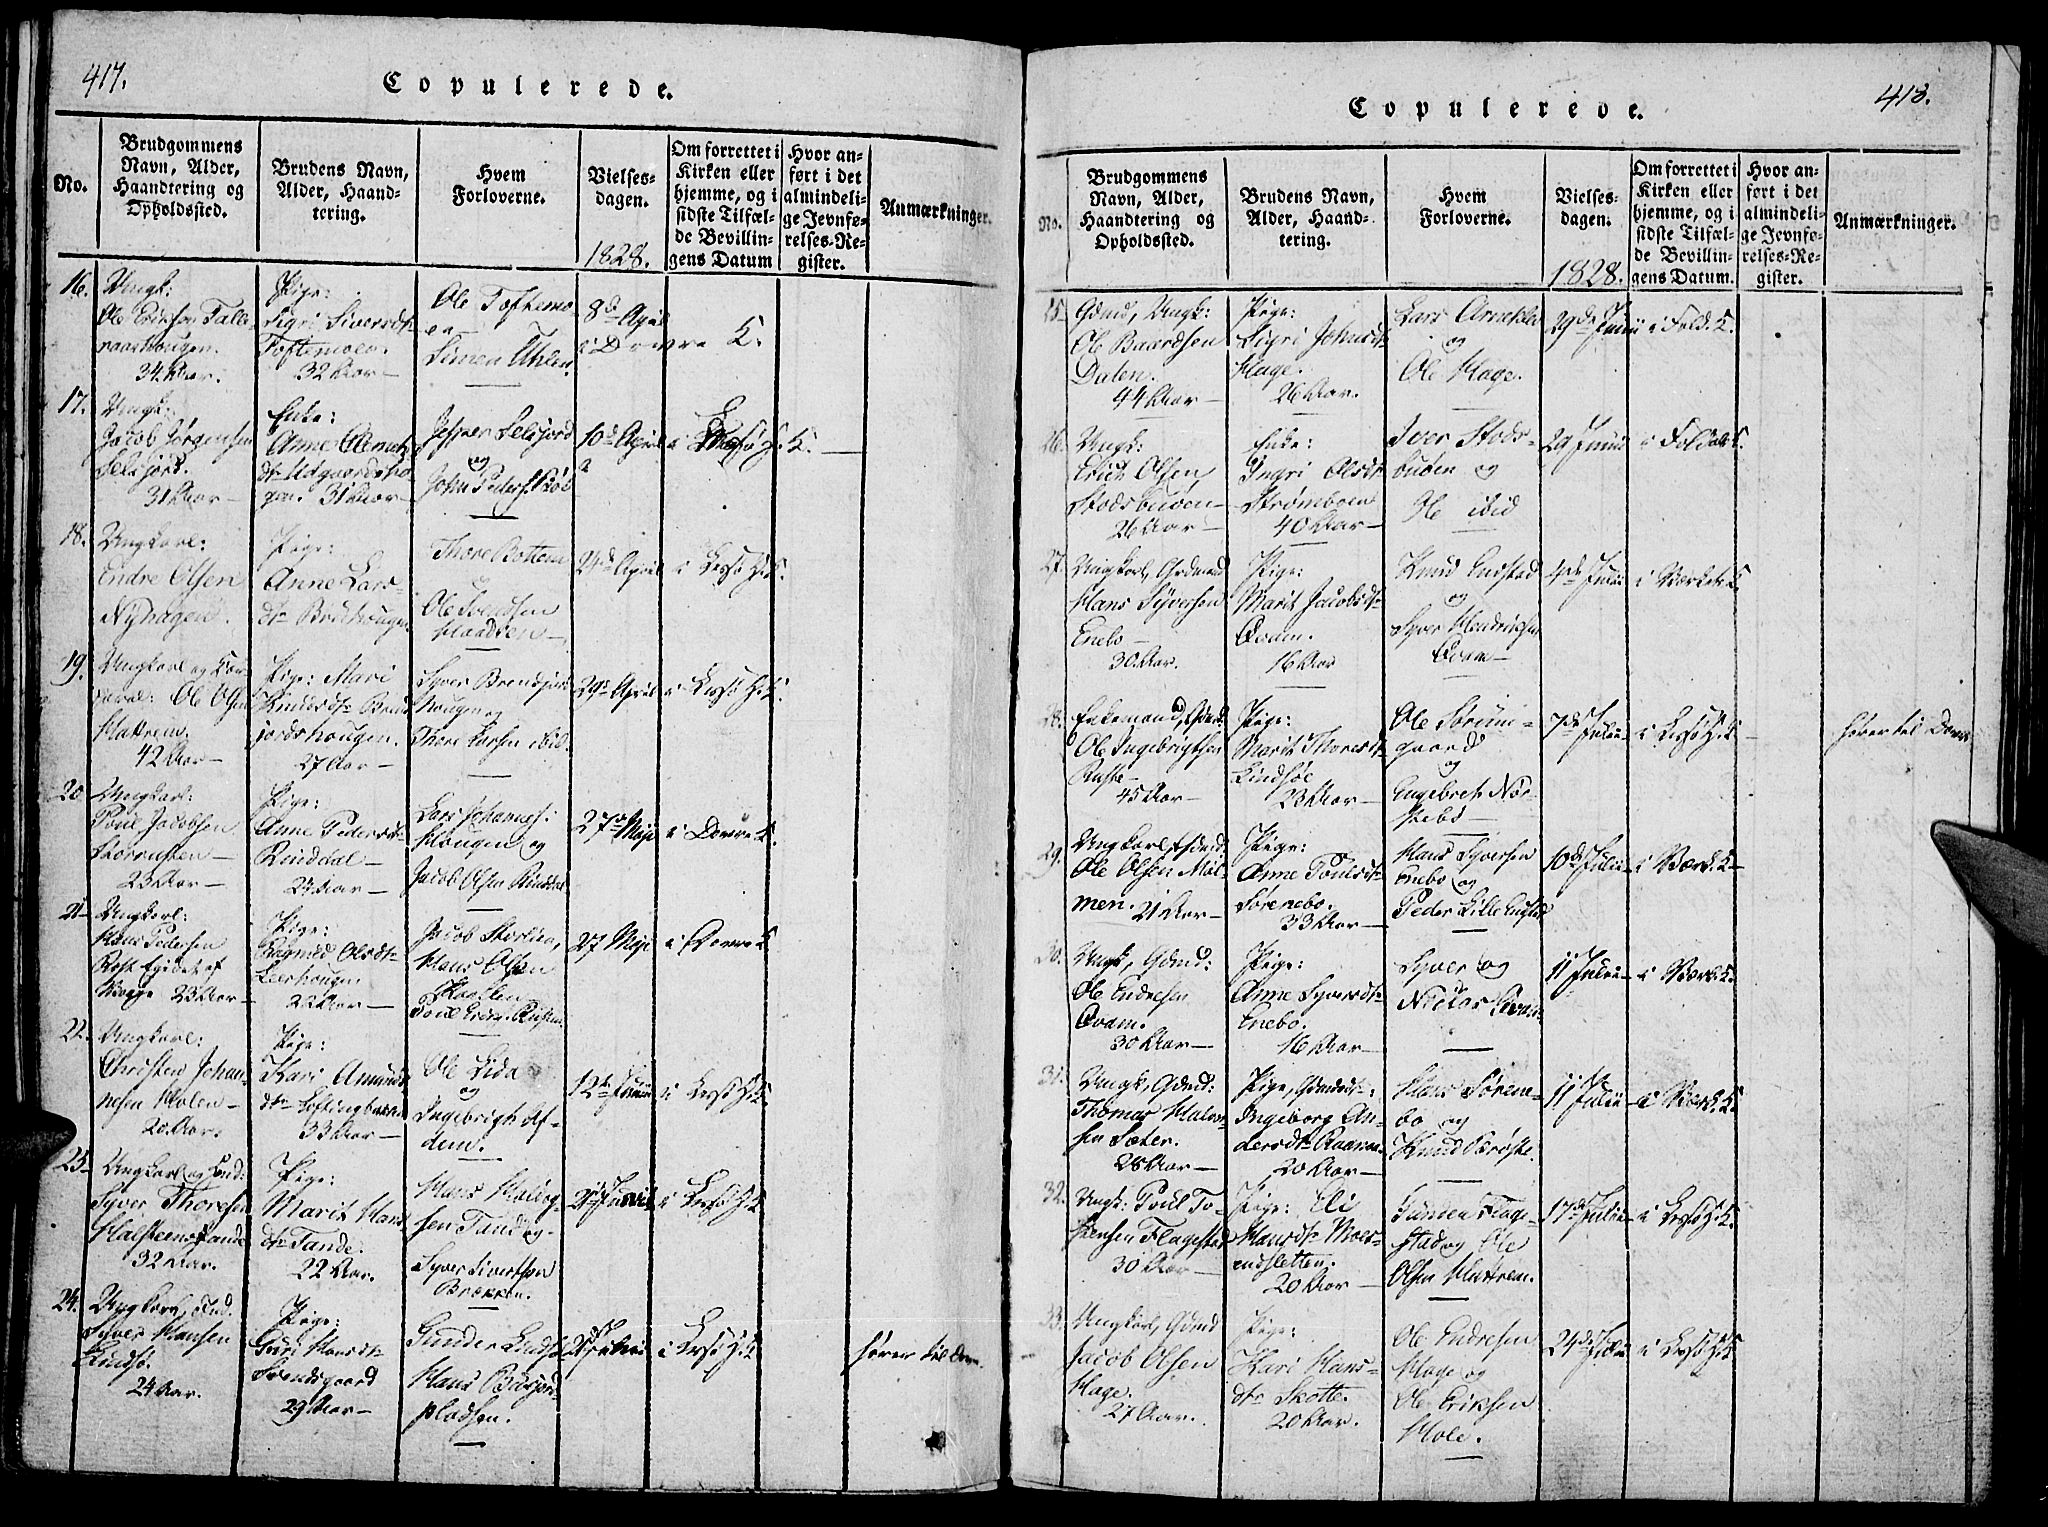 417.
Copulerede.
No.
Brudgommens Navn, Alder, Haandtering og Opholdssted.
Brudens Navn, Alder, Haandtering.
Hvem Forloverne.
Vielses-dagen.
1828.
Om forrettet i Kirken eller hjemme, og i sidste Tilfælde Bevillingens Datum
Hvor anført i det almindelige Jevnførelses-Register.
Anmærkninger.
16.
Ungk:
Ole Eriksen
34 Aar.
Pige:
Sigri Siversdtr
Toftemoen.
32 Aar
Ole Toftemoen
Simen Uhlen.
8de April
i Dovre K.
17.
Ungk:
Jacob Jørgensen
Selsjord.
31 Aar
Enke:
Anne
31 Aar
Jesper Selsjord
og
John Peders.
10de April
i Lessø H. K.
18.
Ungkarl:
Endre Olsen
Nyhagen.
Pige:
Anne Lars-
dtr
Thore Bottem
Ole Svendsen
24de April
i Lessø H. K.
19.
Ungkarl og
Ole Olsen
Hattrem.
42 Aar
Pige: Mari
Knudsdtr
jordshougen.
27 Aar
Syver
hougen og
Thore Larsen ibid.
29de April
i Lessø H. K.
20
Ungkarl:
Poul Jacobsen
23 Aar
Pige:
Anne Pedersdtr
Rinddal
24 Aar
Lars Johannes:
Hougen og
Jacob Olsen Rinddal
27de Maji
i Dovre K.
21
Ungkarl:
Hans Pedersen
23 Aar
Pige:
Ragnild Olsdtr
Leerhougen
22 Aar
Jacob
Hans Olsen
27 Maji
i Dovre K
22.
Ungkarl:
Christen Johan-
nesen Holen
20 Aar.
Pige:
Kari Amunds
dtr
33 Aar
Ole Lida
og
Ingebrigt Af-
dem.
12te Junii
i Lessø H. K.
23
Ungkarl og
Syver Thoresen
32 Aar.
Pige:
Marit Hans
dtr Tande.
22 Aar.
Hans
sen Tande og
Syver Sivertsen
Brækken.
i Lessø H. K
24.
Ungkarl,
Syver Hansen
Lindsø.
24 Aar.
Pige:
Guri Hansdtr
Svendsgaard
29 Aar
Gunder Lindsø
Hans
pladsen.
i Lessø H. K
hører til
418.
Copulerede.
No.
Brudgommens Navn, Alder, Haandtering og Opholdssted.
Brudens Navn, Alder, Haandtering.
Hvem Forloverne.
Vielses-dagen.
1828.
Om forrettet i Kirken eller hjemme, og i sidste Tilfælde Bevillingens Datum.
Hvor anført i det almindelige Jevnførelses-Register.
Anmærkninger.
Gdmd, Ungk:
Ole Baardsen
Dalen.
44 Aar
Pige:
Sigri Johnsdtr
Hage.
26 Aar.
Lars
og
Ole Hage.
29de Junii
i Fold. K.
26.
Ungk:
Erich Olsen,
Stodsbuøen
26 Aar
Enke:
Ingri Olsdtr
Strømboen
40 Aar
Iver Stods-
buøen og
Ole ibid
29 Junii
i Foldal K.
27.
Ungkarl, Grdmd
Hans Syversen
Enebo
30 Aar.
Pige:
Marit Jacobsdtr
Qvam.
16 Aar
Knud Endstad
og
Syver Hendricksen
Qvam
4de Julii
i Værkets K
28.
Enkemand, Gdmd:
Ole Ingebrigtsen
Ruste
45 Aar
Pige:
Marit Thoresdtr
Lindsøe
23 Aar
Ole Sørum-
gaard
og
Engebret Nør-
stebø
7de Julii
i Lessø H. K
hører til Dovre
29.
Ungkarl, Gdmd:
Ole Olsen Møl-
men. 21 Aar
Pige:
Anne Poulsdtr
Sørenebo.
33 Aar
Hans Syversen
Enebo og
Peder Lille
10de Julii
i Værk. K
30.
Ungk, Gdmd:
Ole Endresen
Qvam.
30 Aar
Pige:
Anne Syversdtr
Enebo.
16 Aar
Syver og
Niclas Qvam
11 Julii
i Værk K.
31.
Ungk, Gdmd:
Thomas Halvor-
sen Sæter.
28 Aar
Pige,
Ingeborg An-
dersdtr
20 Aar
Hans Sørene-
bo og
Knud
11 Julii
i Værk. K.
32.
Ungk: Poul To-
stensen Flagestad
30 Aar
Pige: Eli
Hansdtr
sletten.
20 Aar
Simen Flage-
stad og Ole
Olsen Hattrem.
17de Julii
i Lessø H. K.
33.
Ungkarl, Gdmd
Jacob Olsen
Hage.
27 Aar.
Pige:
Kari Hans-
dtr Skotte.
20 Aar.
Ole Endresen
Hage og
Ole Eriksen
Hole.
24de Julii
i Lessø H. K